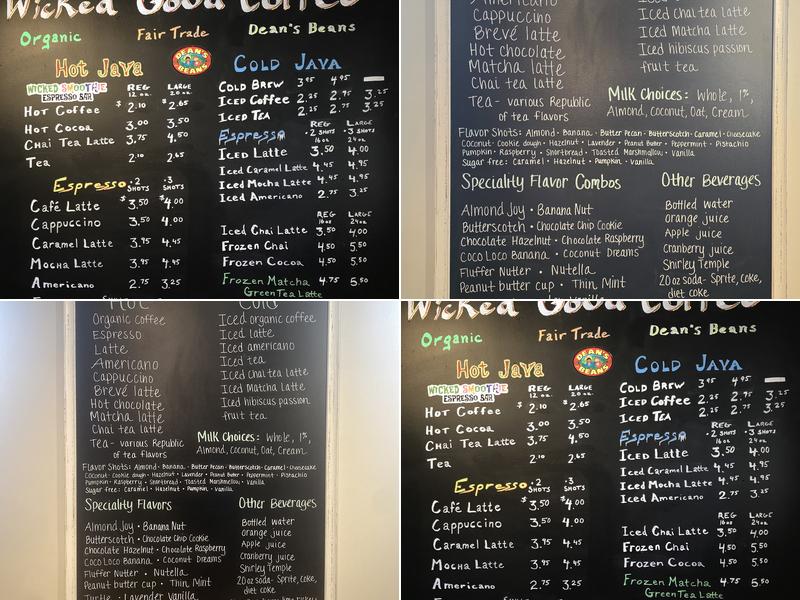 Wicked Good Coffee
Organic
Fair Trade
Dean's Beans
DEAN'S BEANS
Hot Java
WICKED SMOOTHIE
ESPRESSO BAR
REG 12 oz. LARGE 20 oz.
Hot Coffee $2.10 $2.65
Hot Cocoa 3.00 3.50
Chai Tea Latte 3.75 4.50
Tea 2.10 2.65
Espresso •2 SHOTS •3 SHOTS
Café Latte $3.50 $4.00
Cappuccino 3.50 4.00
Caramel Latte 3.95 4.45
Mocha Latte 3.95 4.45
Americano 2.75 3.25
Cold Java
Cold Brew 3.95 4.95 —
Iced Coffee 2.25 2.75 3.25
Iced Tea 2.25 2.75 3.25
Espresso REG •2 SHOTS 16 oz LARGE •3 SHOTS 24 oz
Iced Latte 3.50 4.00
Iced Caramel Latte 4.45 4.95
Iced Mocha Latte 4.45 4.95
Iced Americano 2.75 3.25
REG 16 oz LARGE 24 oz
Iced Chai Latte 3.50 4.00
Frozen Chai 4.50 5.50
Frozen Cocoa 4.50 5.50
Frozen Matcha 4.75 5.50
Green Tea Latte
Americano
Cappuccino
Brevé latte
Hot chocolate
Matcha latte
Chai tea latte
Tea - various Republic
of tea flavors
Iced Chai tea latte
Iced Matcha latte
Iced hibiscus passion
fruit tea
Milk Choices: Whole, 1%,
Almond, Coconut, Oat, Cream
Flavor Shots: Almond • Banana • Butter Pecan • Butterscotch • Caramel • Cheesecake
Coconut • Cookie dough • Hazelnut • Lavender • Peanut Butter • Peppermint • Pistachio
Pumpkin • Raspberry • Shortbread • Toasted Marshmallow • Vanilla
Sugar free: Caramel • Hazelnut • Pumpkin • Vanilla
Speciality Flavor Combos
Almond Joy • Banana Nut
Butterscotch • Chocolate Chip Cookie
Chocolate Hazelnut • Chocolate Raspberry
Coco Loco Banana • Coconut Dreams
Fluffer Nutter • Nutella
Peanut butter cup • Thin Mint
Other Beverages
Bottled water
orange juice
Apple juice
Cranberry juice
Shirley Temple
20 oz soda - Sprite, Coke,
diet coke
Hot
Organic coffee
Espresso
Latte
Americano
Cappuccino
Brevé latte
Hot chocolate
Matcha latte
Chai tea latte
Tea - various Republic
of tea flavors
Cold
Iced organic coffee
Iced latte
Iced americano
Iced tea
Iced Chai tea latte
Iced Matcha latte
Iced hibiscus passion
fruit tea
Milk Choices: Whole, 1%,
Almond, Coconut, Oat, Cream
Flavor Shots: Almond • Banana • Butter Pecan • Butterscotch • Caramel • Cheesecake
Coconut • Cookie dough • Hazelnut • Lavender • Peanut Butter • Peppermint • Pistachio
Pumpkin • Raspberry • Shortbread • Toasted Marshmallow • Vanilla
Sugar free: Caramel • Hazelnut • Pumpkin • Vanilla
Speciality Flavors
Almond Joy • Banana Nut
Butterscotch • Chocolate Chip Cookie
Chocolate Hazelnut • Chocolate Raspberry
Coco Loco Banana • Coconut Dreams
Fluffer Nutter • Nutella
Peanut butter cup • Thin Mint
Turtle • Lavender Vanilla
Other Beverages
Bottled water
orange juice
Apple juice
Cranberry juice
Shirley Temple
20 oz soda - Sprite, Coke,
diet coke
Wicked Good Coffee
Organic
Fair Trade
Dean's Beans
DEAN'S BEANS
Hot Java
WICKED SMOOTHIE
ESPRESSO BAR
REG 12 oz. LARGE 20 oz.
Hot Coffee $2.10 $2.65
Hot Cocoa 3.00 3.50
Chai Tea Latte 3.75 4.50
Tea 2.10 2.65
Espresso •2 SHOTS •3 SHOTS
Café Latte $3.50 $4.00
Cappuccino 3.50 4.00
Caramel Latte 3.95 4.45
Mocha Latte 3.95 4.45
Americano 2.75 3.25
Cold Java
Cold Brew 3.95 4.95 —
Iced Coffee 2.25 2.75 3.25
Iced Tea 2.25 2.75 3.25
Espresso REG •2 SHOTS 16 oz LARGE •3 SHOTS 24 oz
Iced Latte 3.50 4.00
Iced Caramel Latte 4.45 4.95
Iced Mocha Latte 4.45 4.95
Iced Americano 2.75 3.25
REG 16 oz LARGE 24 oz
Iced Chai Latte 3.50 4.00
Frozen Chai 4.50 5.50
Frozen Cocoa 4.50 5.50
Frozen Matcha 4.75 5.50
Green Tea Latte